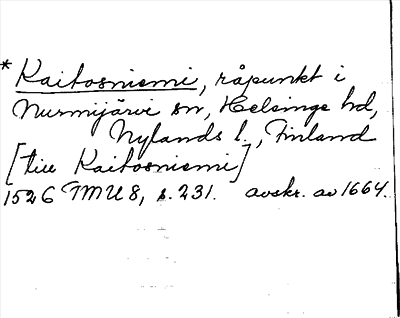 * Kaitosniemi, råpunkt i
Nurmijärvi sn, Helsinge hd,
Nylands l., Finland
[till Kaitosniemi]
1526 TMU 8, s. 231. avskr. av 1664.